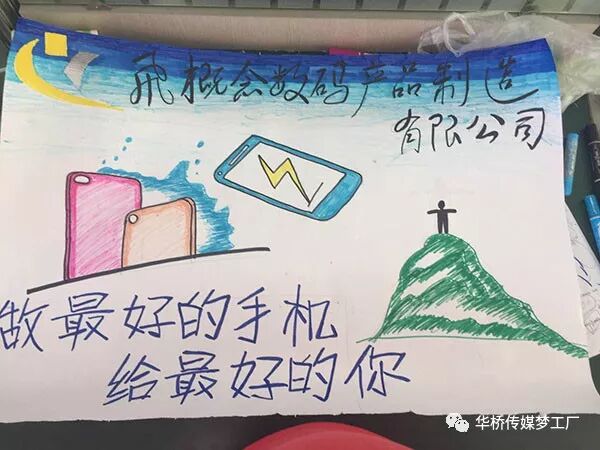 飛概念数码产品制造
有限公司
做最好的手机
给最好的你
华桥传媒梦工厂